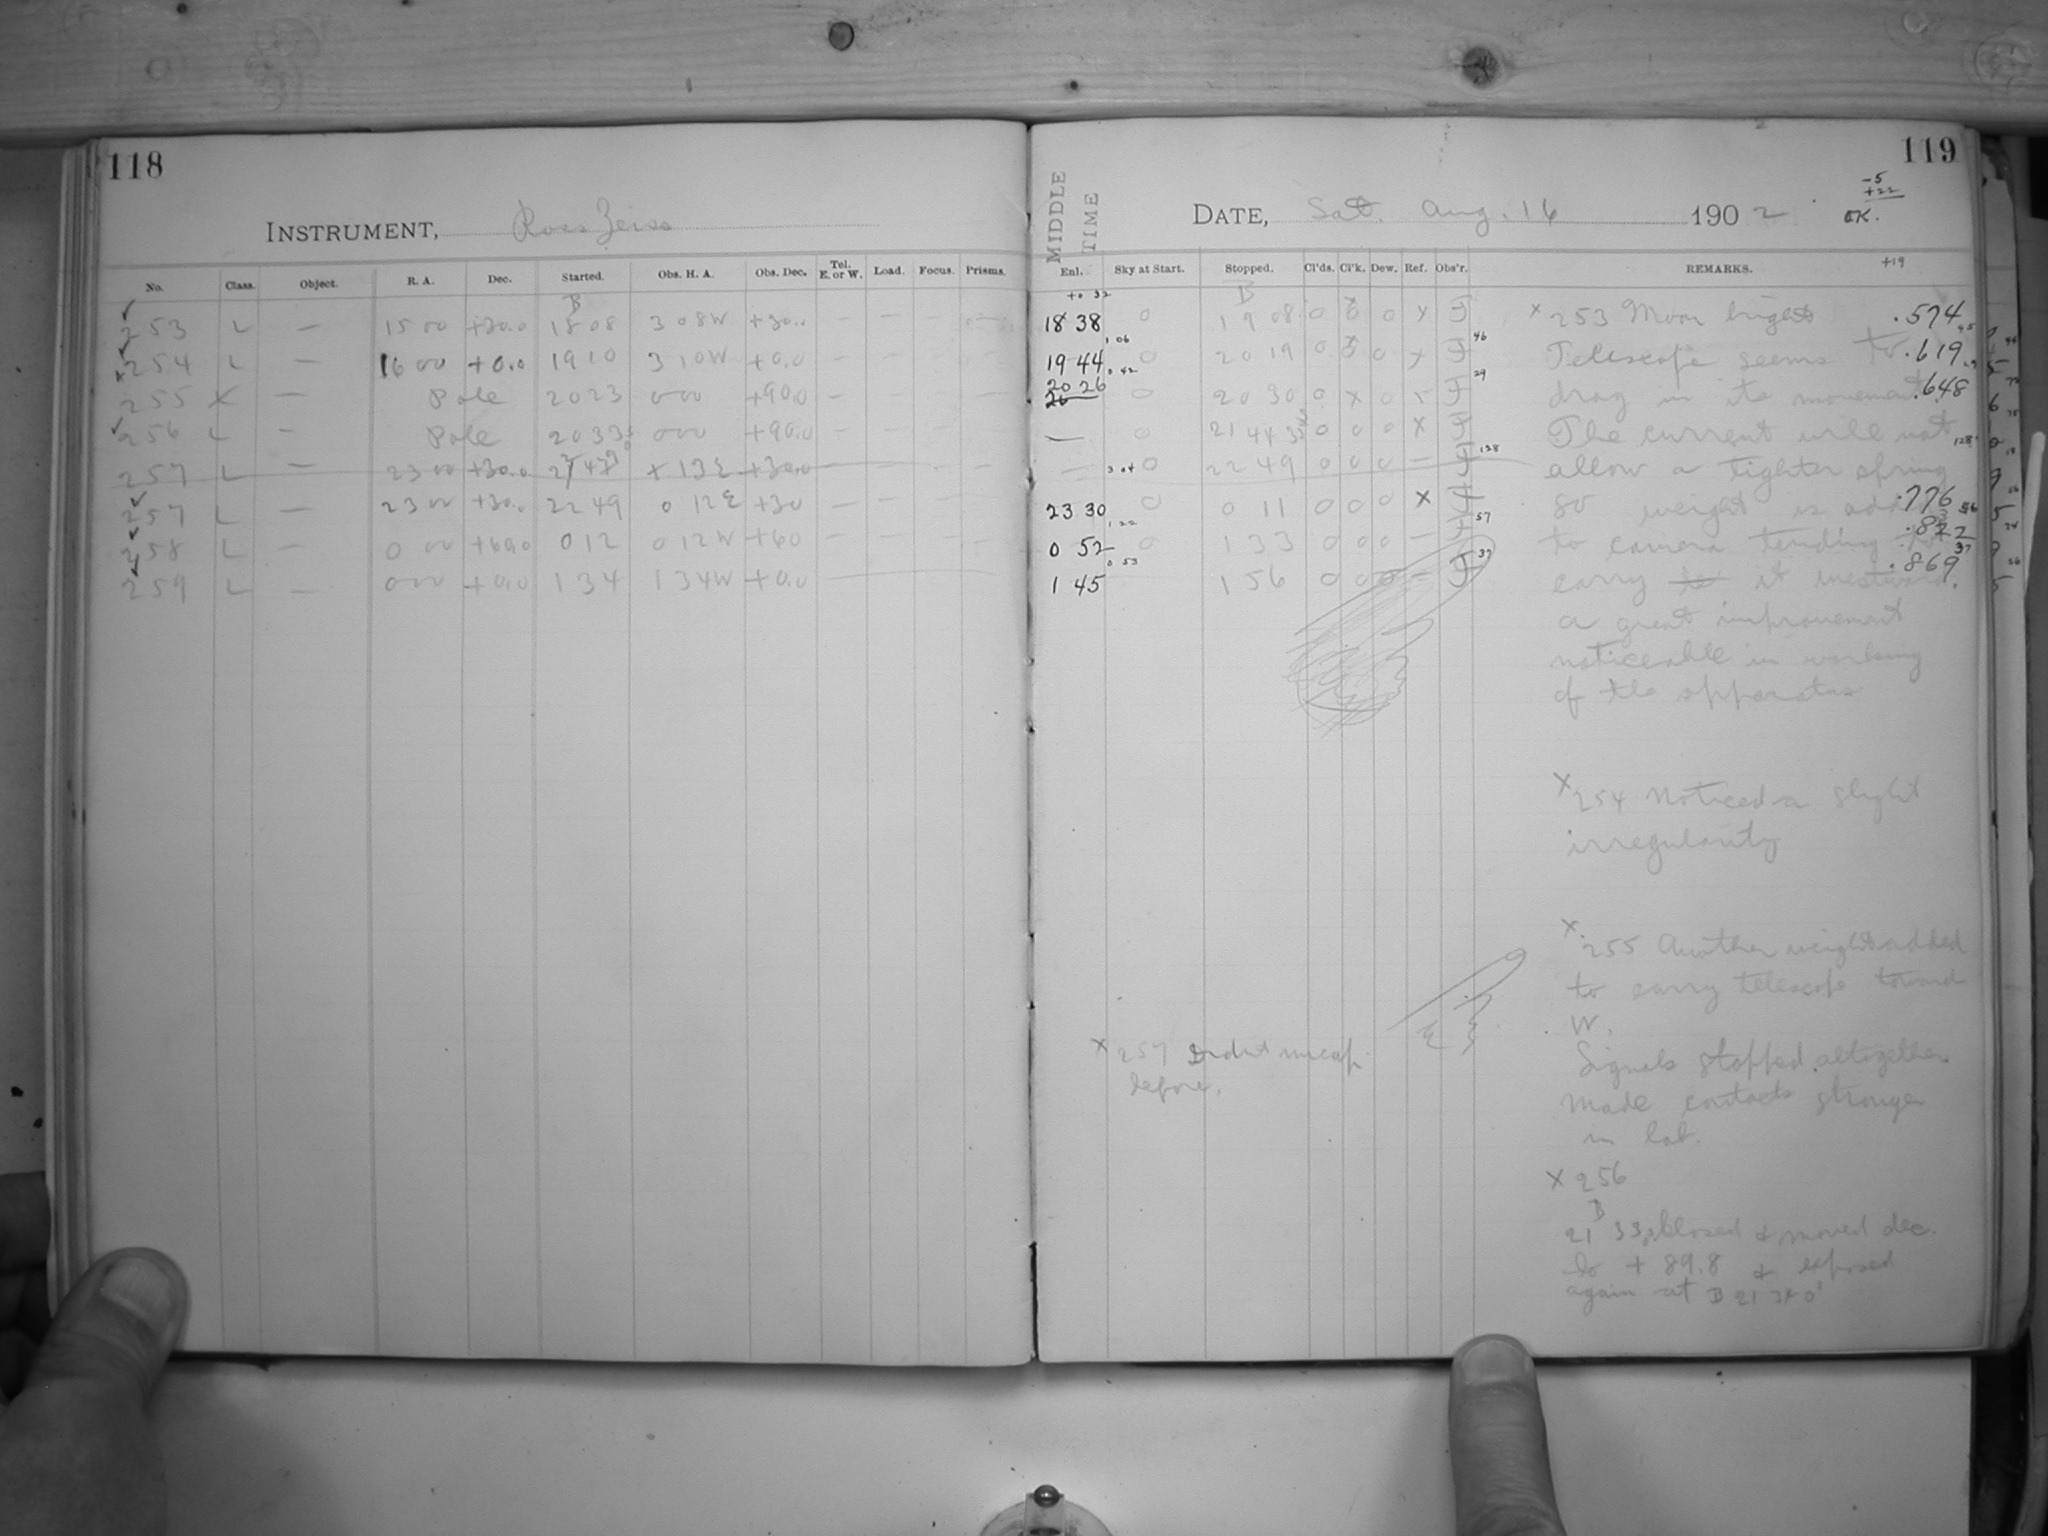 118
INSTRUMENT, Ross Zeiss
No. Class. Object. R. A. Dec. Started. Obs. H. A. Obs. Dec. Tel. E. or W. Load. Focus. Prisms.
B
253 L — 15 00 +30.0 18 08 3 08W +30.0 — — — —
254 L — 16 00 +0.0 19 10 3 10W +0.0 — — — —
255 X — Pole 20 23 0 00 +90.0 — — — —
256 L — Pole 20 33 0 00 +90.0 — — — —
257 L — 23 00 +30.0 +13E +30.0
257 L — 23 00 +30.0 22 49 0 12E +30 — — —
258 L — 0 00 +60.0 0 12 0 12W +60
259 L — 0 00 +0.0 1 34 1 34W +0.0
119
MIDDLE TIME
DATE, Sat. Aug. 16 1902
-5
+22
OK.
Enl. Sky at Start. Stopped. Cl'ds. Cl'k. Dew. Ref. Obs'r. REMARKS. +19
+0 32 B
18 38 0 19 08 0 0 0 x F x 253 Moon bright .574
1 06 46
19 44 0 20 19 0 0 0 x F Telescope seems to .619
0 42 29
20 26 0 20 30 0 x 0 F drag in its movement. .648
26
— 0 21 44 0 0 0 x F The current will not
128
— 3 04 0 22 49 0 0 0 — F allow a tighter spring
23 30 0 0 11 0 0 0 x F so weight is .776
1 22 57
0 52 0 1 33 0 0 0 — F to camera tending
0 53 37
1 45 1 56 0 0 0 — F carry it westward. .869
a great improvement
noticeable in working
of the apparatus
x 254 Noticed a slight
irregularity
x 255 Another weight added
to carry telescope toward
W.
x 257 before.
Signals stopped altogether.
Made contacts stronger
in lab.
x 256
B
21 33 closed & moved dec.
to + 89.8 & exposed
again at B 21 34 0